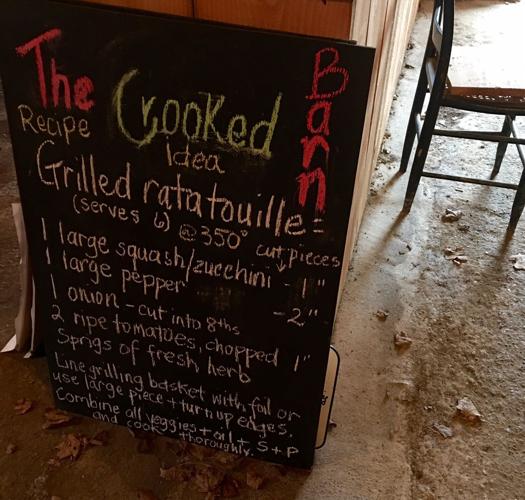 The Crooked Barn
Recipe Idea
Grilled ratatouille =
(serves 6) @ 350° cut pieces
1 large squash/zucchini - 1"
1 large pepper - 2"
1 onion - cut into 8ths
2 ripe tomatoes, chopped 1"
Sprigs of fresh herb
Line grilling basket with foil or
use large piece + turn up edges,
Combine all veggies + oil + S + P
and cook thoroughly.